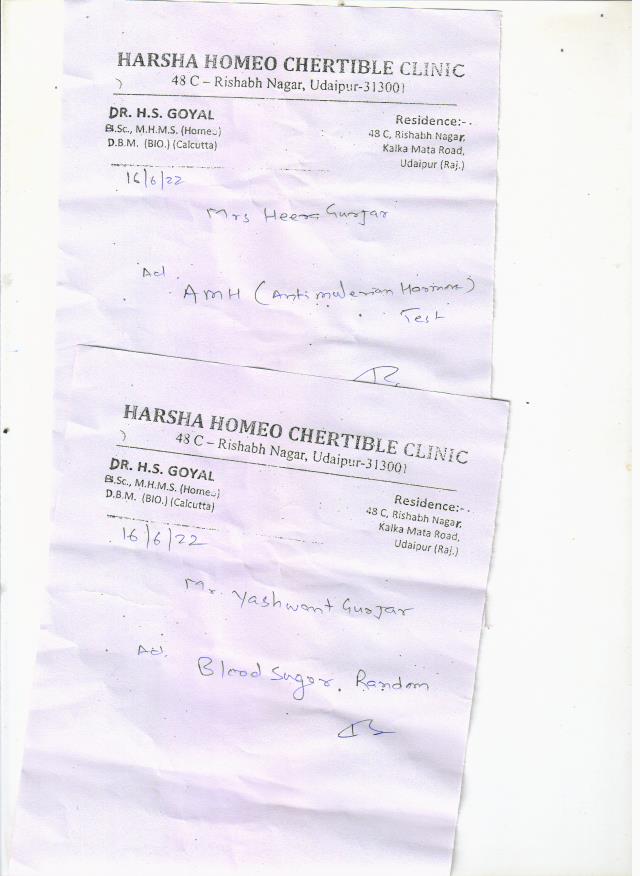 HARSHA HOMEO CHERTIBLE CLINIC
48 C – Rishabh Nagar, Udaipur-313001
DR. H.S. GOYAL
B.Sc., M.H.M.S. (Homeo)
D.B.M. (BIO.) (Calcutta)
Residence:-
48 C, Rishabh Nagar,
Kalka Mata Road,
Udaipur (Raj.)
16/6/22
Mrs Heera Gurjar
Ad.
AMH (Antimulerian Hormone)
Test
HARSHA HOMEO CHERTIBLE CLINIC
48 C – Rishabh Nagar, Udaipur-313001
DR. H.S. GOYAL
B.Sc., M.H.M.S. (Homeo)
D.B.M. (BIO.) (Calcutta)
Residence:-
48 C, Rishabh Nagar,
Kalka Mata Road,
Udaipur (Raj.)
16/6/22
Mr. Yashwant Gurjar
Ad.
Blood Sugar. Random